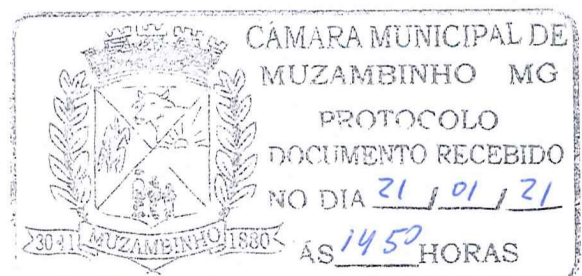 CÂMARA MUNICIPAL DE
MUZAMBINHO MG
PROTOCOLO
DOCUMENTO RECEBIDO
NO DIA 21 / 01 / 21
ÀS 14 50 HORAS
MUZAMBINHO 1880